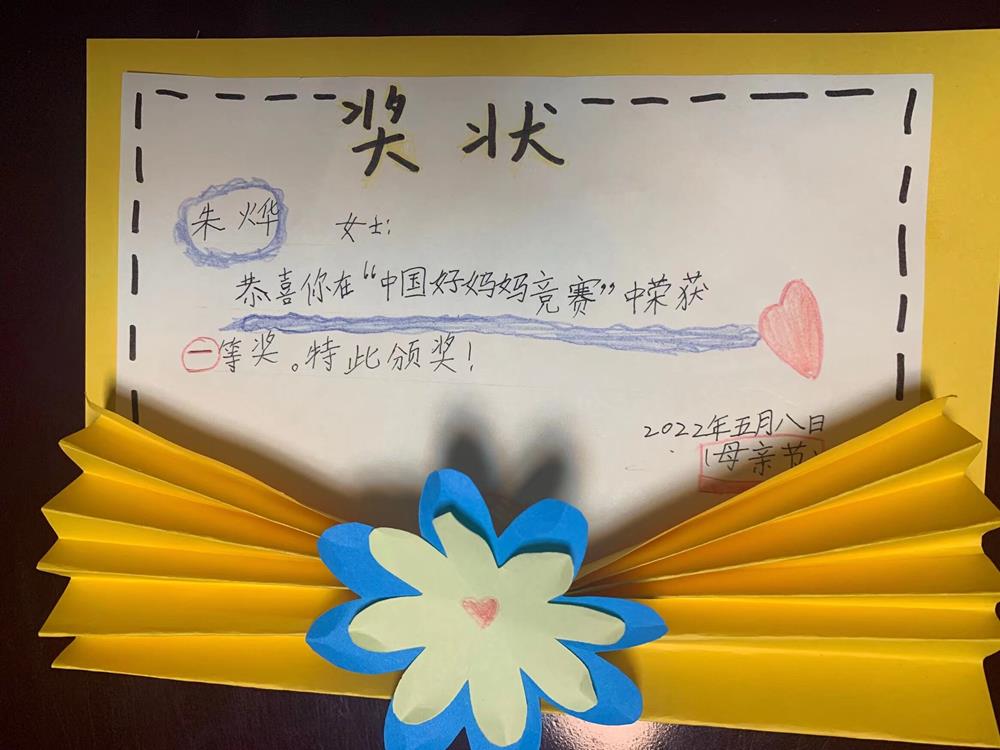 奖状
朱烨 女士:
恭喜你在“中国好妈妈竞赛”中荣获
一等奖。特此颁奖!
2022年五月八日
(母亲节)